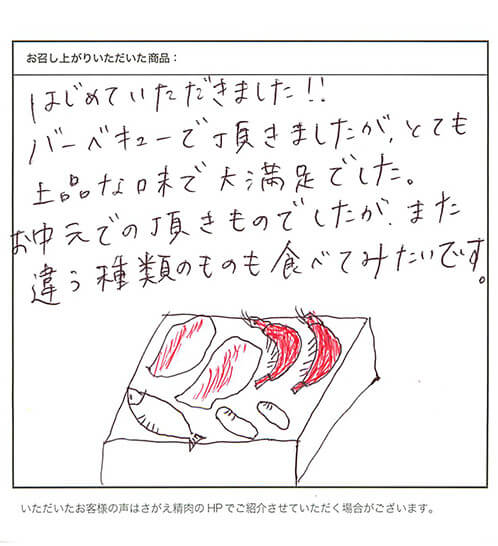 お召し上がりいただいた商品：
はじめていただきました!!
バーベキューで頂きましたが、とても
上品な味で大満足でした。
お中元での頂きものでしたが、また
違う種類のものも食べてみたいです。
いただいたお客様の声はさがえ精肉のHPでご紹介させていただく場合がございます。